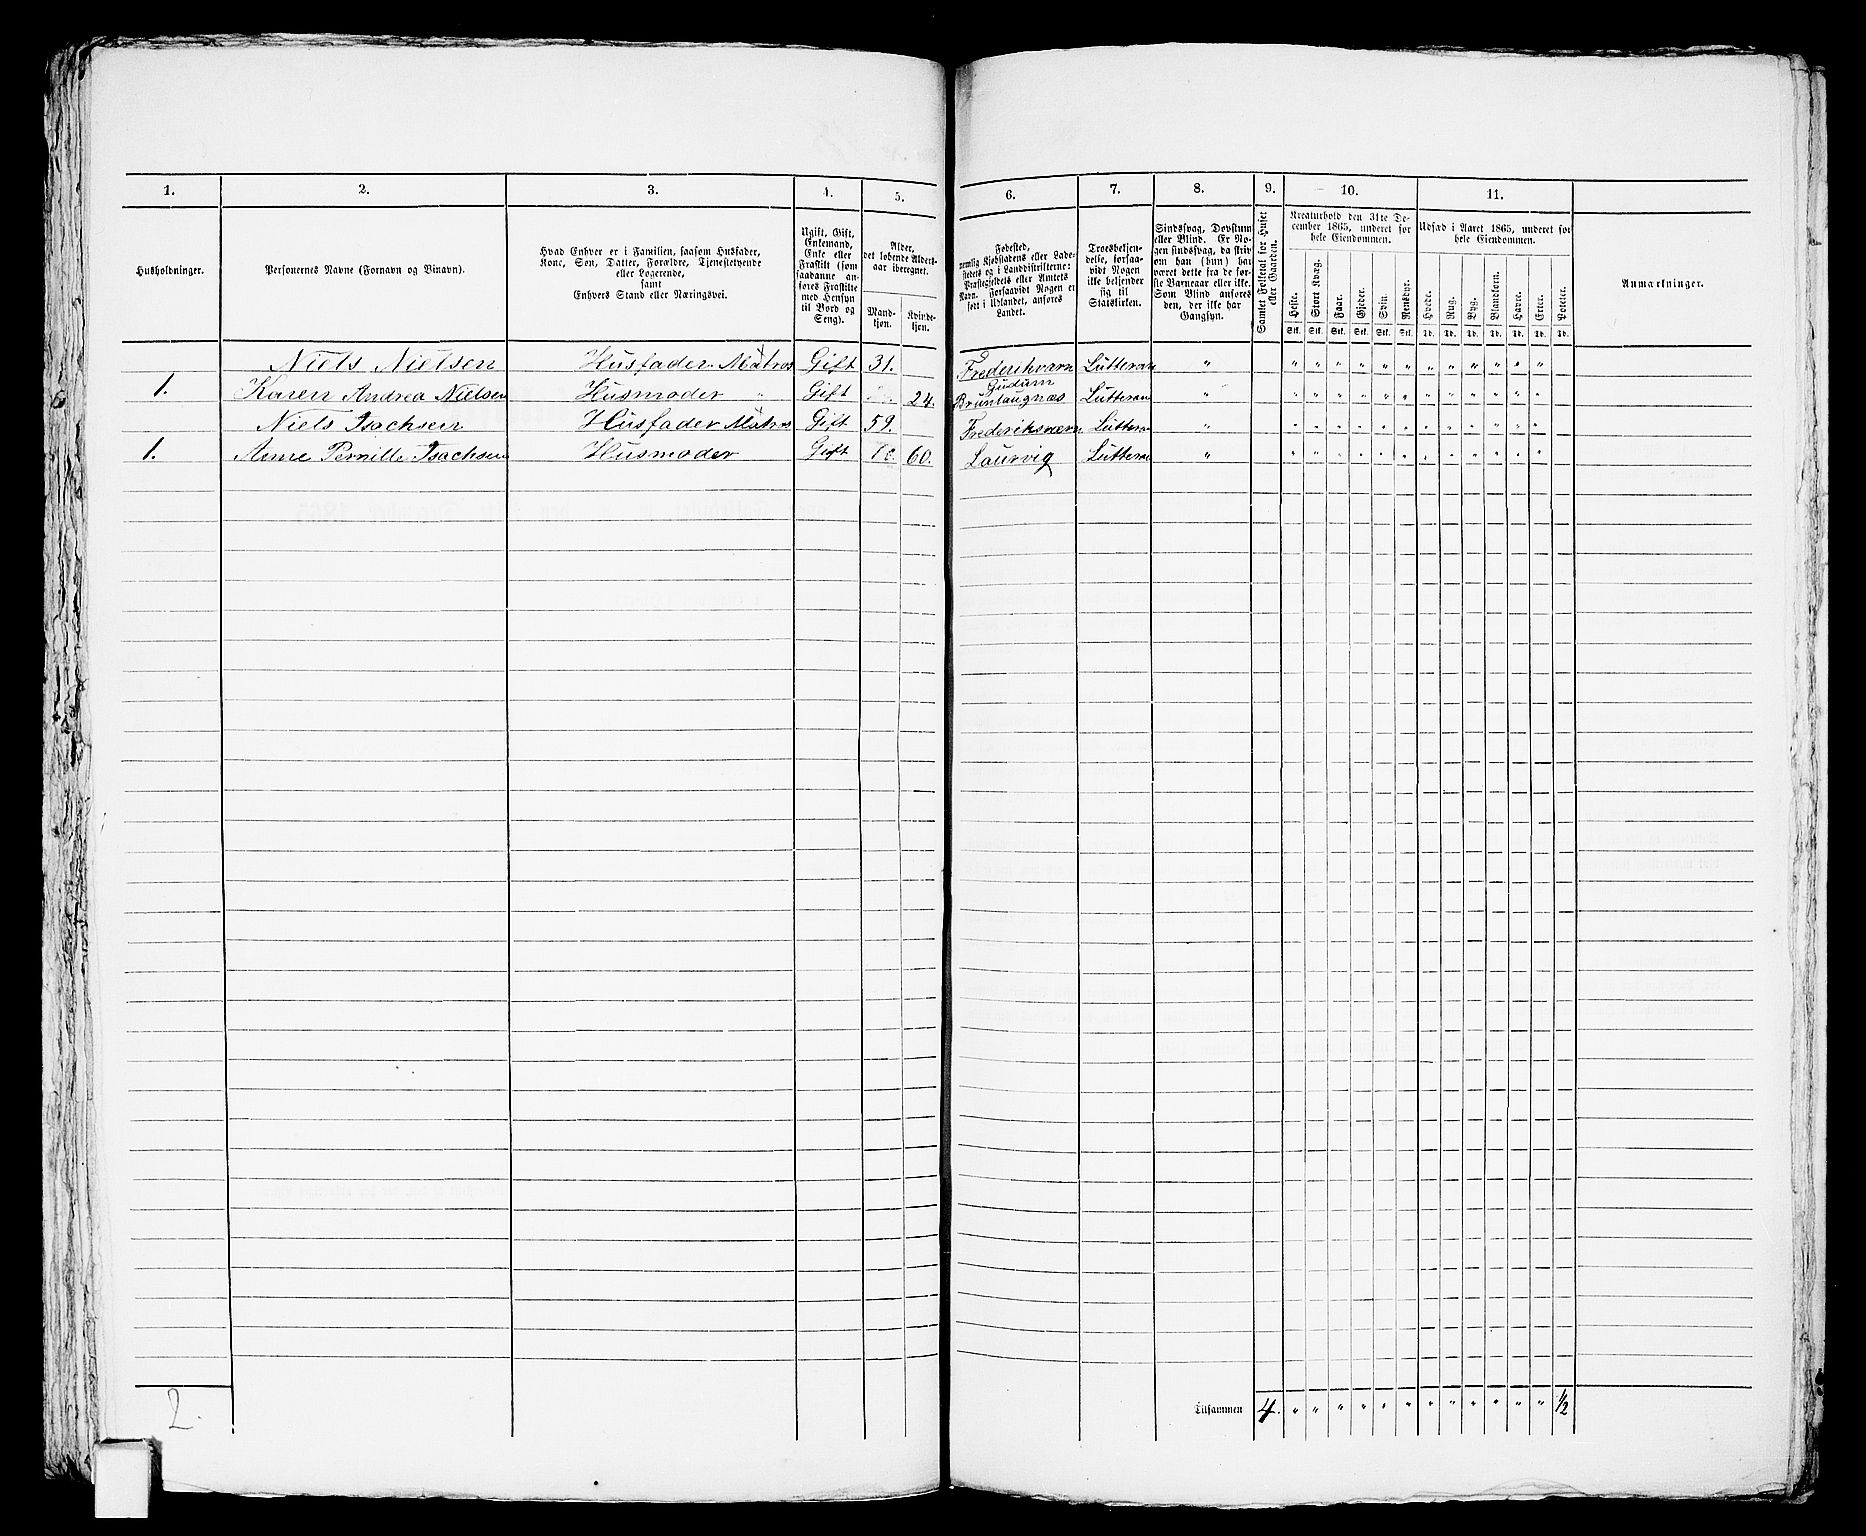 1. 2. 3. 4. 5. 6. 7. 8. 9. 10. 11.
Husholdninger.
Personernes Navne (Fornavn og Tilnavn).
Hvad Enhver er i Familien, saasom Husfader,
Kone, Søn, Datter, Forældre, Tjenestetyende
eller Logerende,
samt
Enhvers Stand eller Næringsvei.
Ugift, Gift,
Enkemand,
Enke eller
Fraskilt (som
saadanne an-
føres Fraskilte
med Hensyn
til Bord og
Seng).
Alder,
det løbende Alders-
aar iberegnet.
Mand-
kjøn.
Kvinde-
kjøn.
Fødested,
nemlig Kjøbstadens eller Lade-
stedets og i Landdistrikterne:
Præstegjeldets eller Amtets
Navn. Forsaavidt Nogen er
født i Udlandet, anføres
Landet.
Troesbekjen-
delse, forsaa-
vidt Nogen
ikke bekjender
sig til
Statskirken.
Sindssvag, Døvstum
eller Blind. Er No-
gen sindssvag, da skriv
om han (hun) har
været dette fra de før-
ste Barneaar eller ikke.
Som Blind anføres
den, der ikke har
Gangsyn.
Samlet Folketal for Huset
eller Gaarden.
Kreaturhold den 31te De-
cember 1865, underet for
hele Eiendommen.
Heste. Stort Kvæg. Faar. Gjeder. Svin. Rensdyr.
Stk. Stk. Stk. Stk. Stk. Stk.
Udsæd i Aaret 1865, underet for
hele Eiendommen.
Hvede. Rug. Byg. Blandkorn. Havre. Erter. Poteter.
Td. Td. Td. Td. Td. Td. Td.
Anmærkninger.
Niels Nielsen Husfader Matros Gift 31. Frederikværn Lutteran " " " " " " " " " " " " "
1. Karen Andrea Nielsen Husmoder " Gift 24. Brunlaugnæs Lutteran " " " " " " " " " " " " "
Niels Isachsen Husfader Matros Gift 59. Frederiksværn Luttera " " " " " " " " " " " " "
1. Anne Pernille Isachsen Husmoder Gift 60. Laurvig Lutteran " " " " " " " " " " " " "
2. Tilsammen 4. " " " " " " " " " " " " 1/2